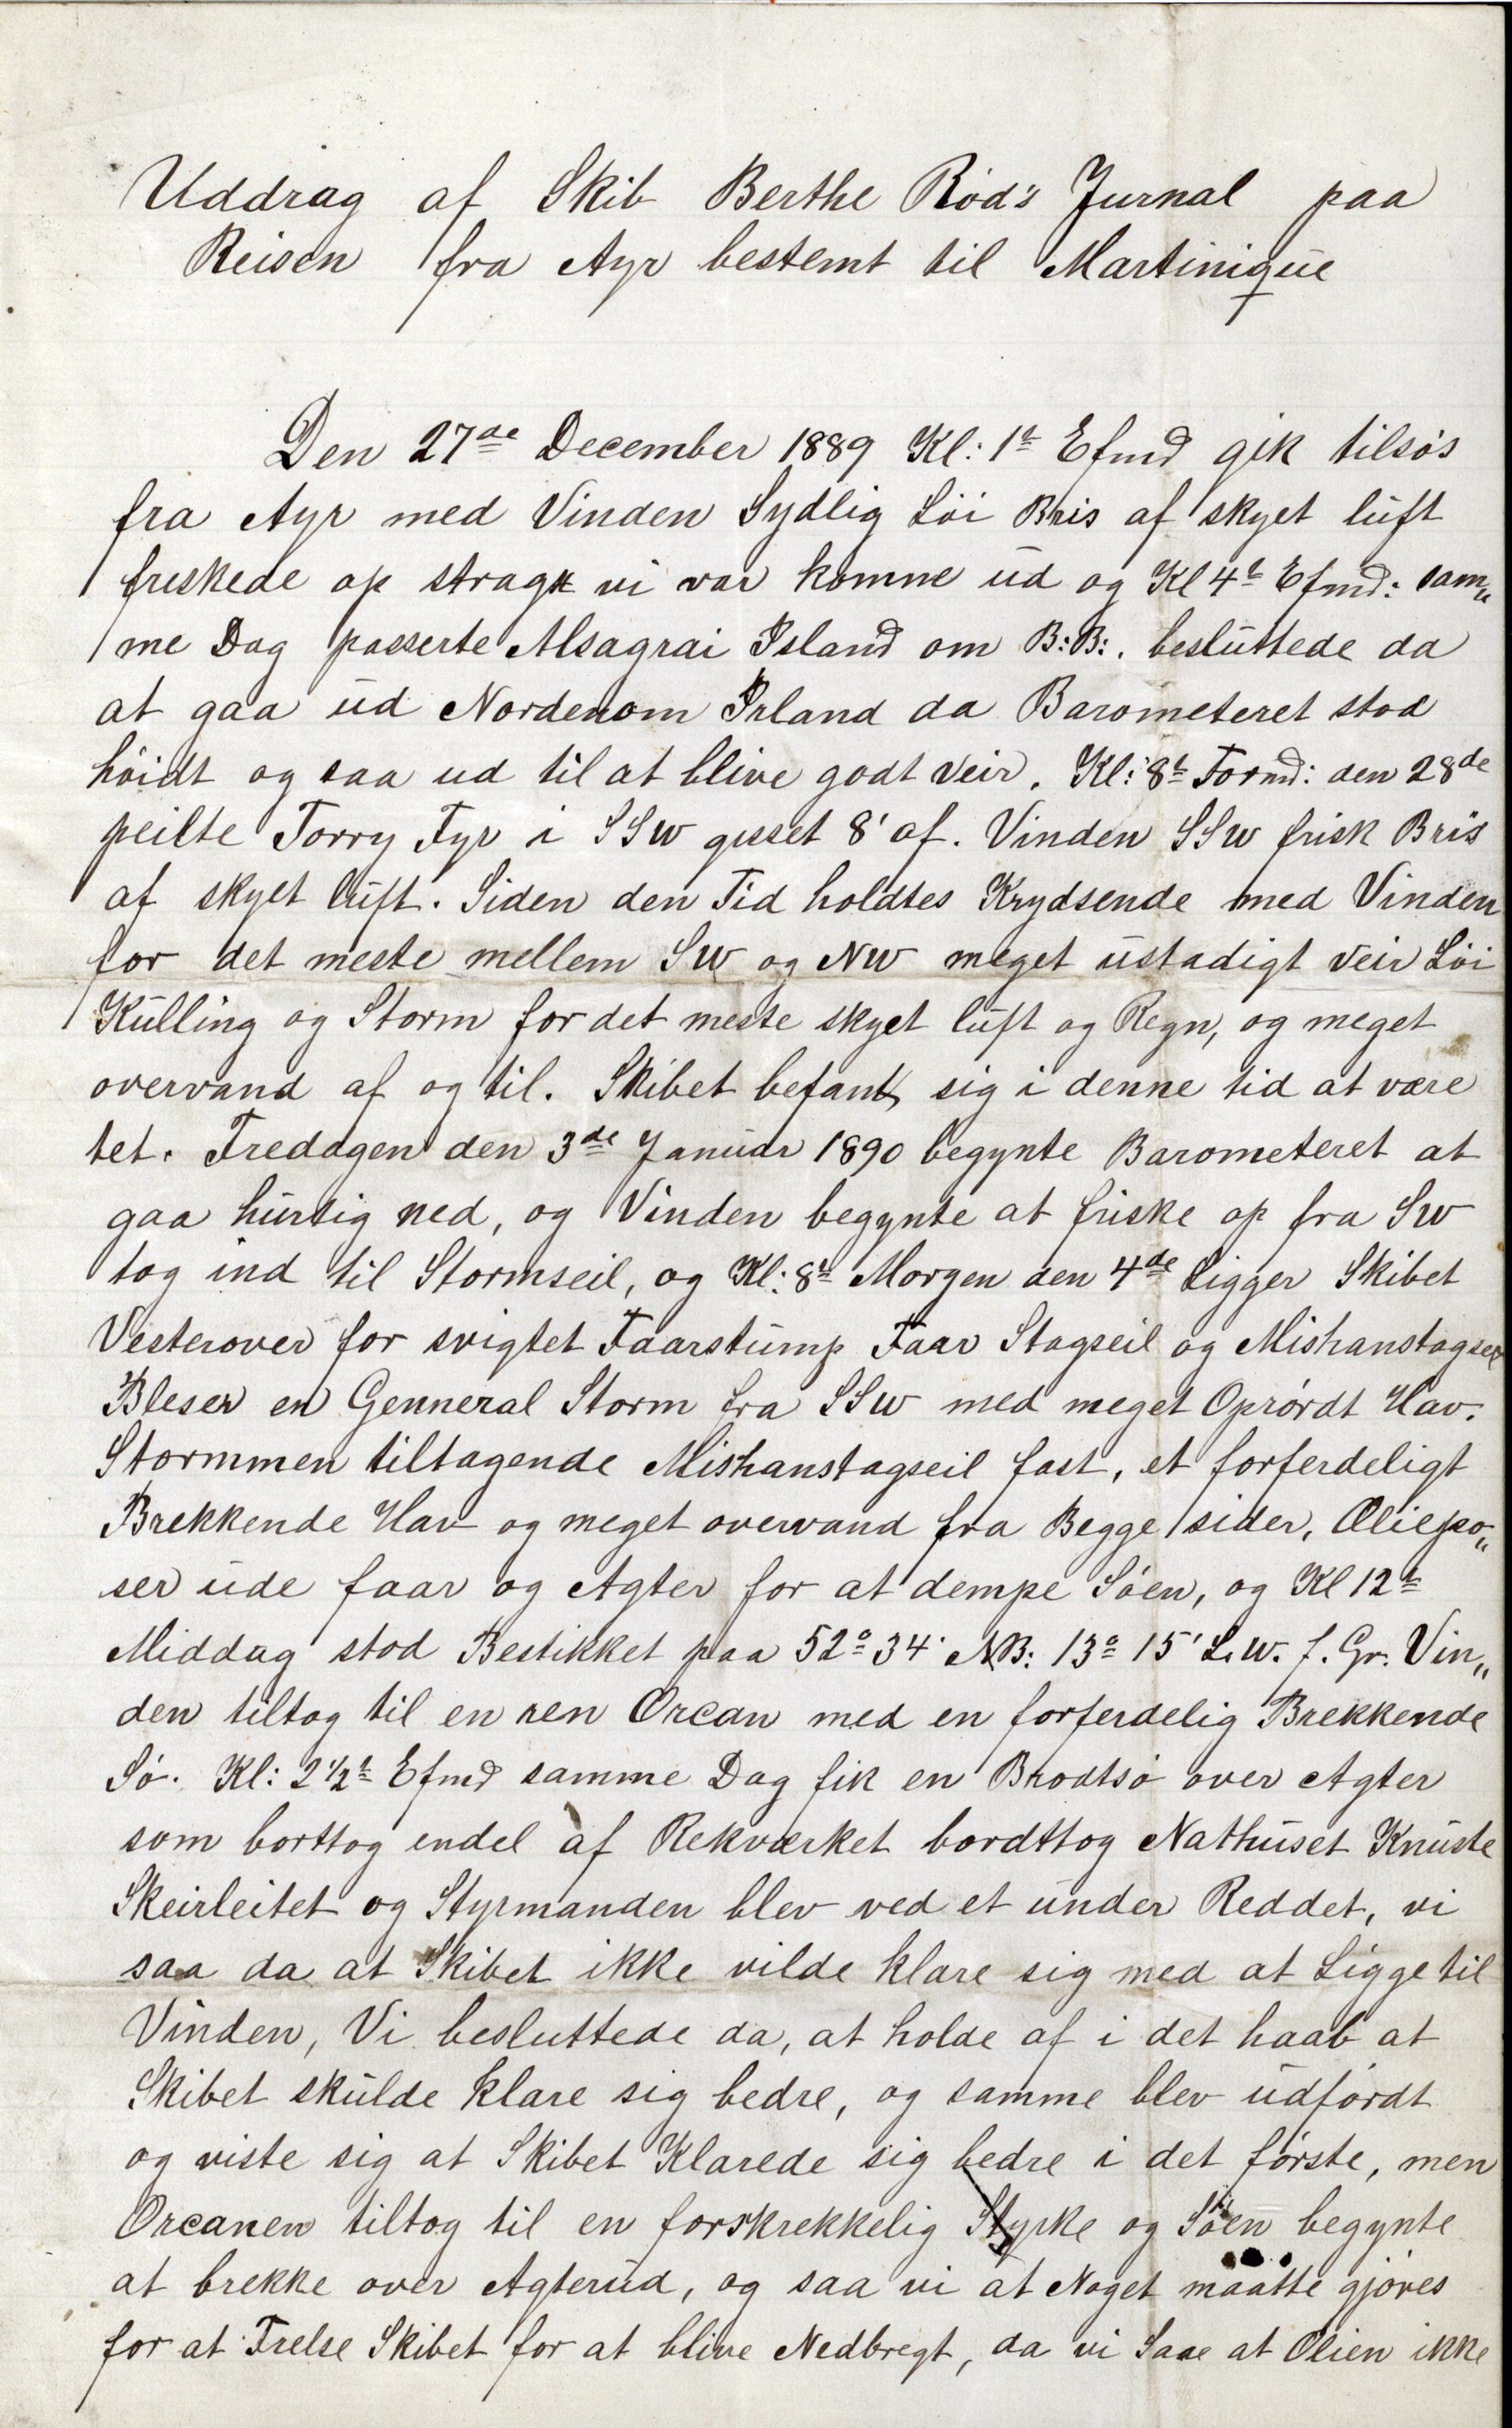 Uddrag af Skib Berthe Rød's Jurnal paa
Reisen fra Ayr bestemt til Martinique
Den 27de December 1889 Kl: 1t Efmd gik tilsøs
fra Ayr med Vinden Sydlig Løi Bris af skyet luft
friskede op stragt vi var komne ud og Kl 4t Efmd: sam„
me Dag passerte Alsagrai Island om B:B:. besluttede da
at gaa ud Nordenom Irland da Barometeret stod
høidt og saa ud til at blive godt veir. Kl: 8t Formd: den 28de
peilte Torry Fyr i SSW gisset 8' af. Vinden SSW frisk Bris
af skyet luft. Siden den Tid holdtes Krydsende med Vinden
for det meste mellem SW og NW meget ustadigt veir Løi
Kulling og Storm for det meste skyet luft og Regn, og meget
overvand af og til. Skibet befant sig i denne tid at være
tet. Fredagen den 3de Januar 1890 begynte Barometeret at
gaa hurtig ned, og Vinden begynte at friske op fra SW
tog ind til Stormseil, og Kl: 8t Morgen den 4de Ligger Skibet
Vesterover for svigtet Faarstump Faar Stagseil og Mishanstagseil
Bleser en Genneral Storm fra SSW med meget Oprørdt Hav.
Stormmen tiltagende Mishanstagseil fast, et forferdeligt
Brekkende Hav og meget overvand fra Begge sider, Oliepo„
ser ude faar og Agter for at dempe Søen, og Kl 12t
Middag stod Bestikket paa 52° 34' NB: 13° 15' L.W. f. Gr. Vin„
den tiltog til en ren Orcan med en forferdelig Brekkende
Sø. Kl: 2 1/2t Efmd samme Dag fik en Brodtsø over Agter
som borttog endel af Rekværket bordttog Nathuset Knuste
Skeirleitet og Styrmanden blev ved et under Reddet, vi
saa da at Skibet ikke vilde klare sig med at Ligge til
Vinden, Vi besluttede da, at holde af i det haab at
Skibet skulde klare sig bedre, og samme blev udførdt
og viste sig at Skibet Klarede sig bedre i det første, men
Orcanen tiltog til en forskrekkelig Styrke og Søen begynte
at brekke over Agterud, og saa vi at Noget maatte gjøres
for at Frelse Skibet for at blive Nedbregt, da vi Saae at Olien ikke